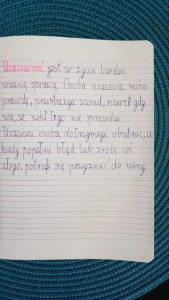 Uczciwość jest w życiu bardzo
ważną sprawą. Osoba uczciwa, mówi
prawdę, przestrzega zasad, nawet gdy
wie, że nikt tego nie sprawdzi.
Uczciwa osoba dotrzymuje obietnic, a
kiedy popełni błąd lub zrobi coś
złego, potrafi się przyznać do winy.